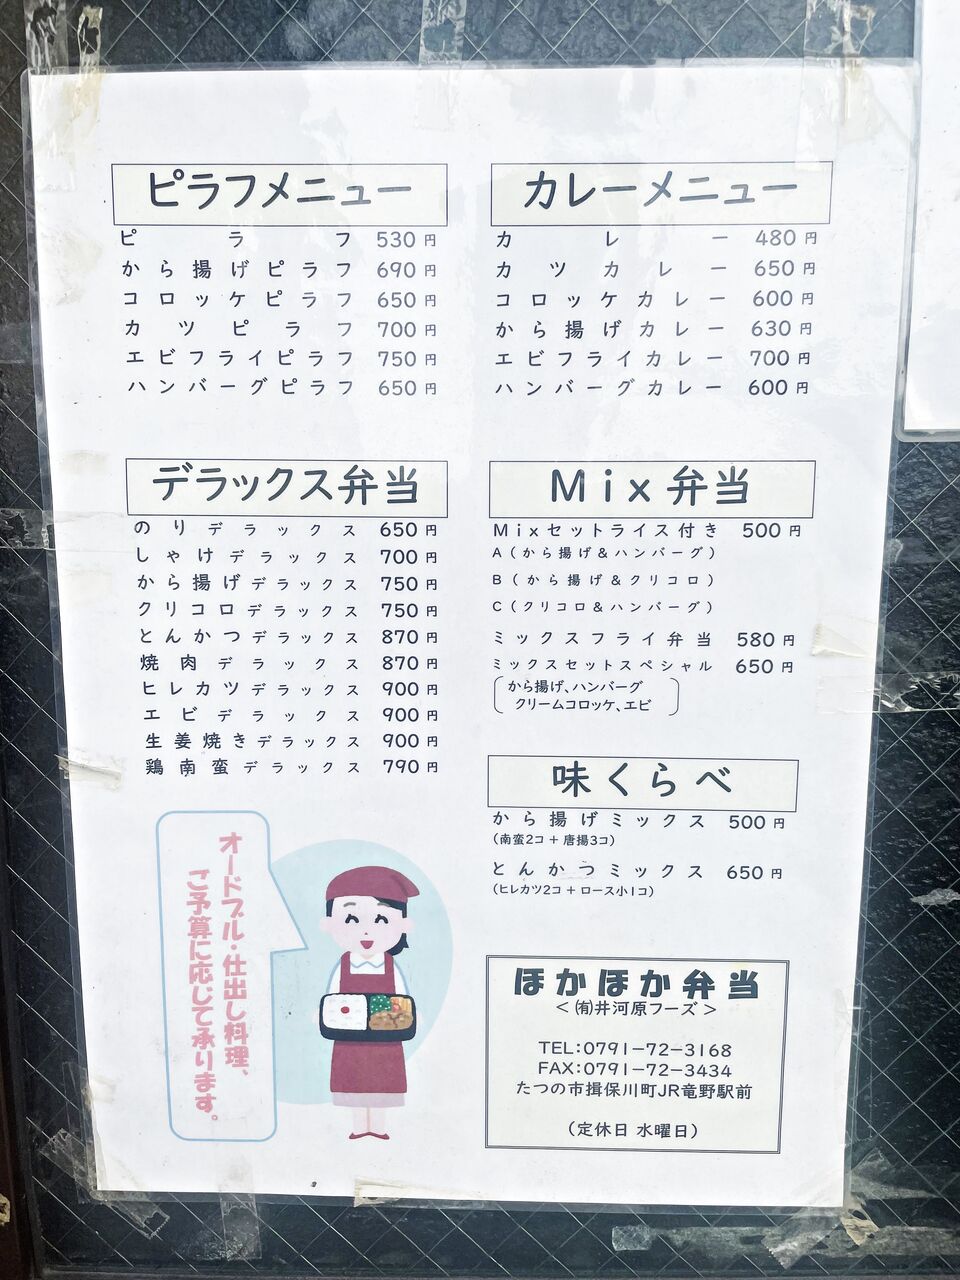 ピラフメニュー
ピラフ 530円
から揚げピラフ 690円
コロッケピラフ 650円
カツピラフ 700円
エビフライピラフ 750円
ハンバーグピラフ 650円
カレーメニュー
カレー 480円
カツカレー 650円
コロッケカレー 600円
から揚げカレー 630円
エビフライカレー 700円
ハンバーグカレー 600円
デラックス弁当
のりデラックス 650円
しゃけデラックス 700円
から揚げデラックス 750円
クリコロデラックス 750円
とんかつデラックス 870円
焼肉デラックス 870円
ヒレカツデラックス 900円
エビデラックス 900円
生姜焼きデラックス 900円
鶏南蛮デラックス 790円
Mix弁当
Mixセットライス付き 500円
A(から揚げ&ハンバーグ)
B(から揚げ&クリコロ)
C(クリコロ&ハンバーグ)
ミックスフライ弁当 580円
ミックスセットスペシャル 650円
から揚げ、ハンバーグ
クリームコロッケ、エビ
味くらべ
から揚げミックス 500円
(南蛮2コ+唐揚3コ)
とんかつミックス 650円
(ヒレカツ2コ+ロース小1コ)
オードブル・仕出し料理、
ご予算に応じて承ります。
ほかほか弁当
<㈲井河原フーズ>
TEL:0791-72-3168
FAX:0791-72-3434
たつの市揖保川町JR竜野駅前
(定休日 水曜日)